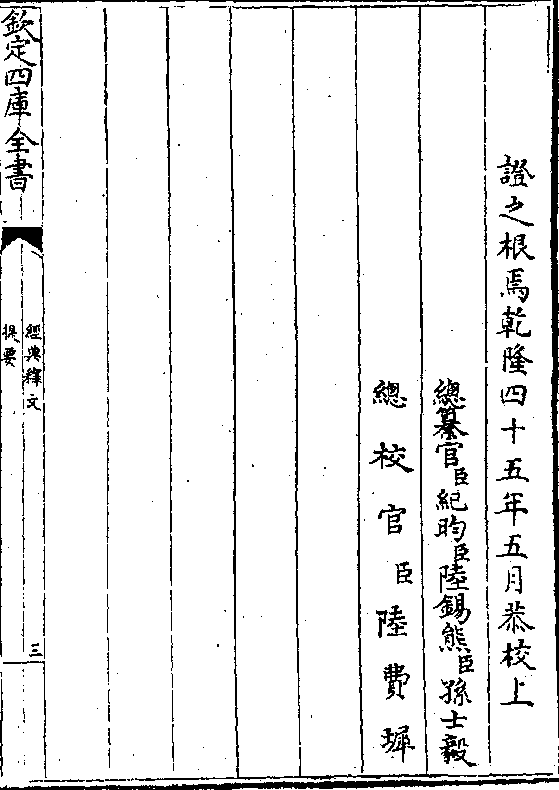 證之根焉乾隆四十五年五月恭校上
總纂官臣紀昀臣陸錫熊臣孫士毅
總校官臣陸費墀
欽定四庫全書
經典釋文
提要
三